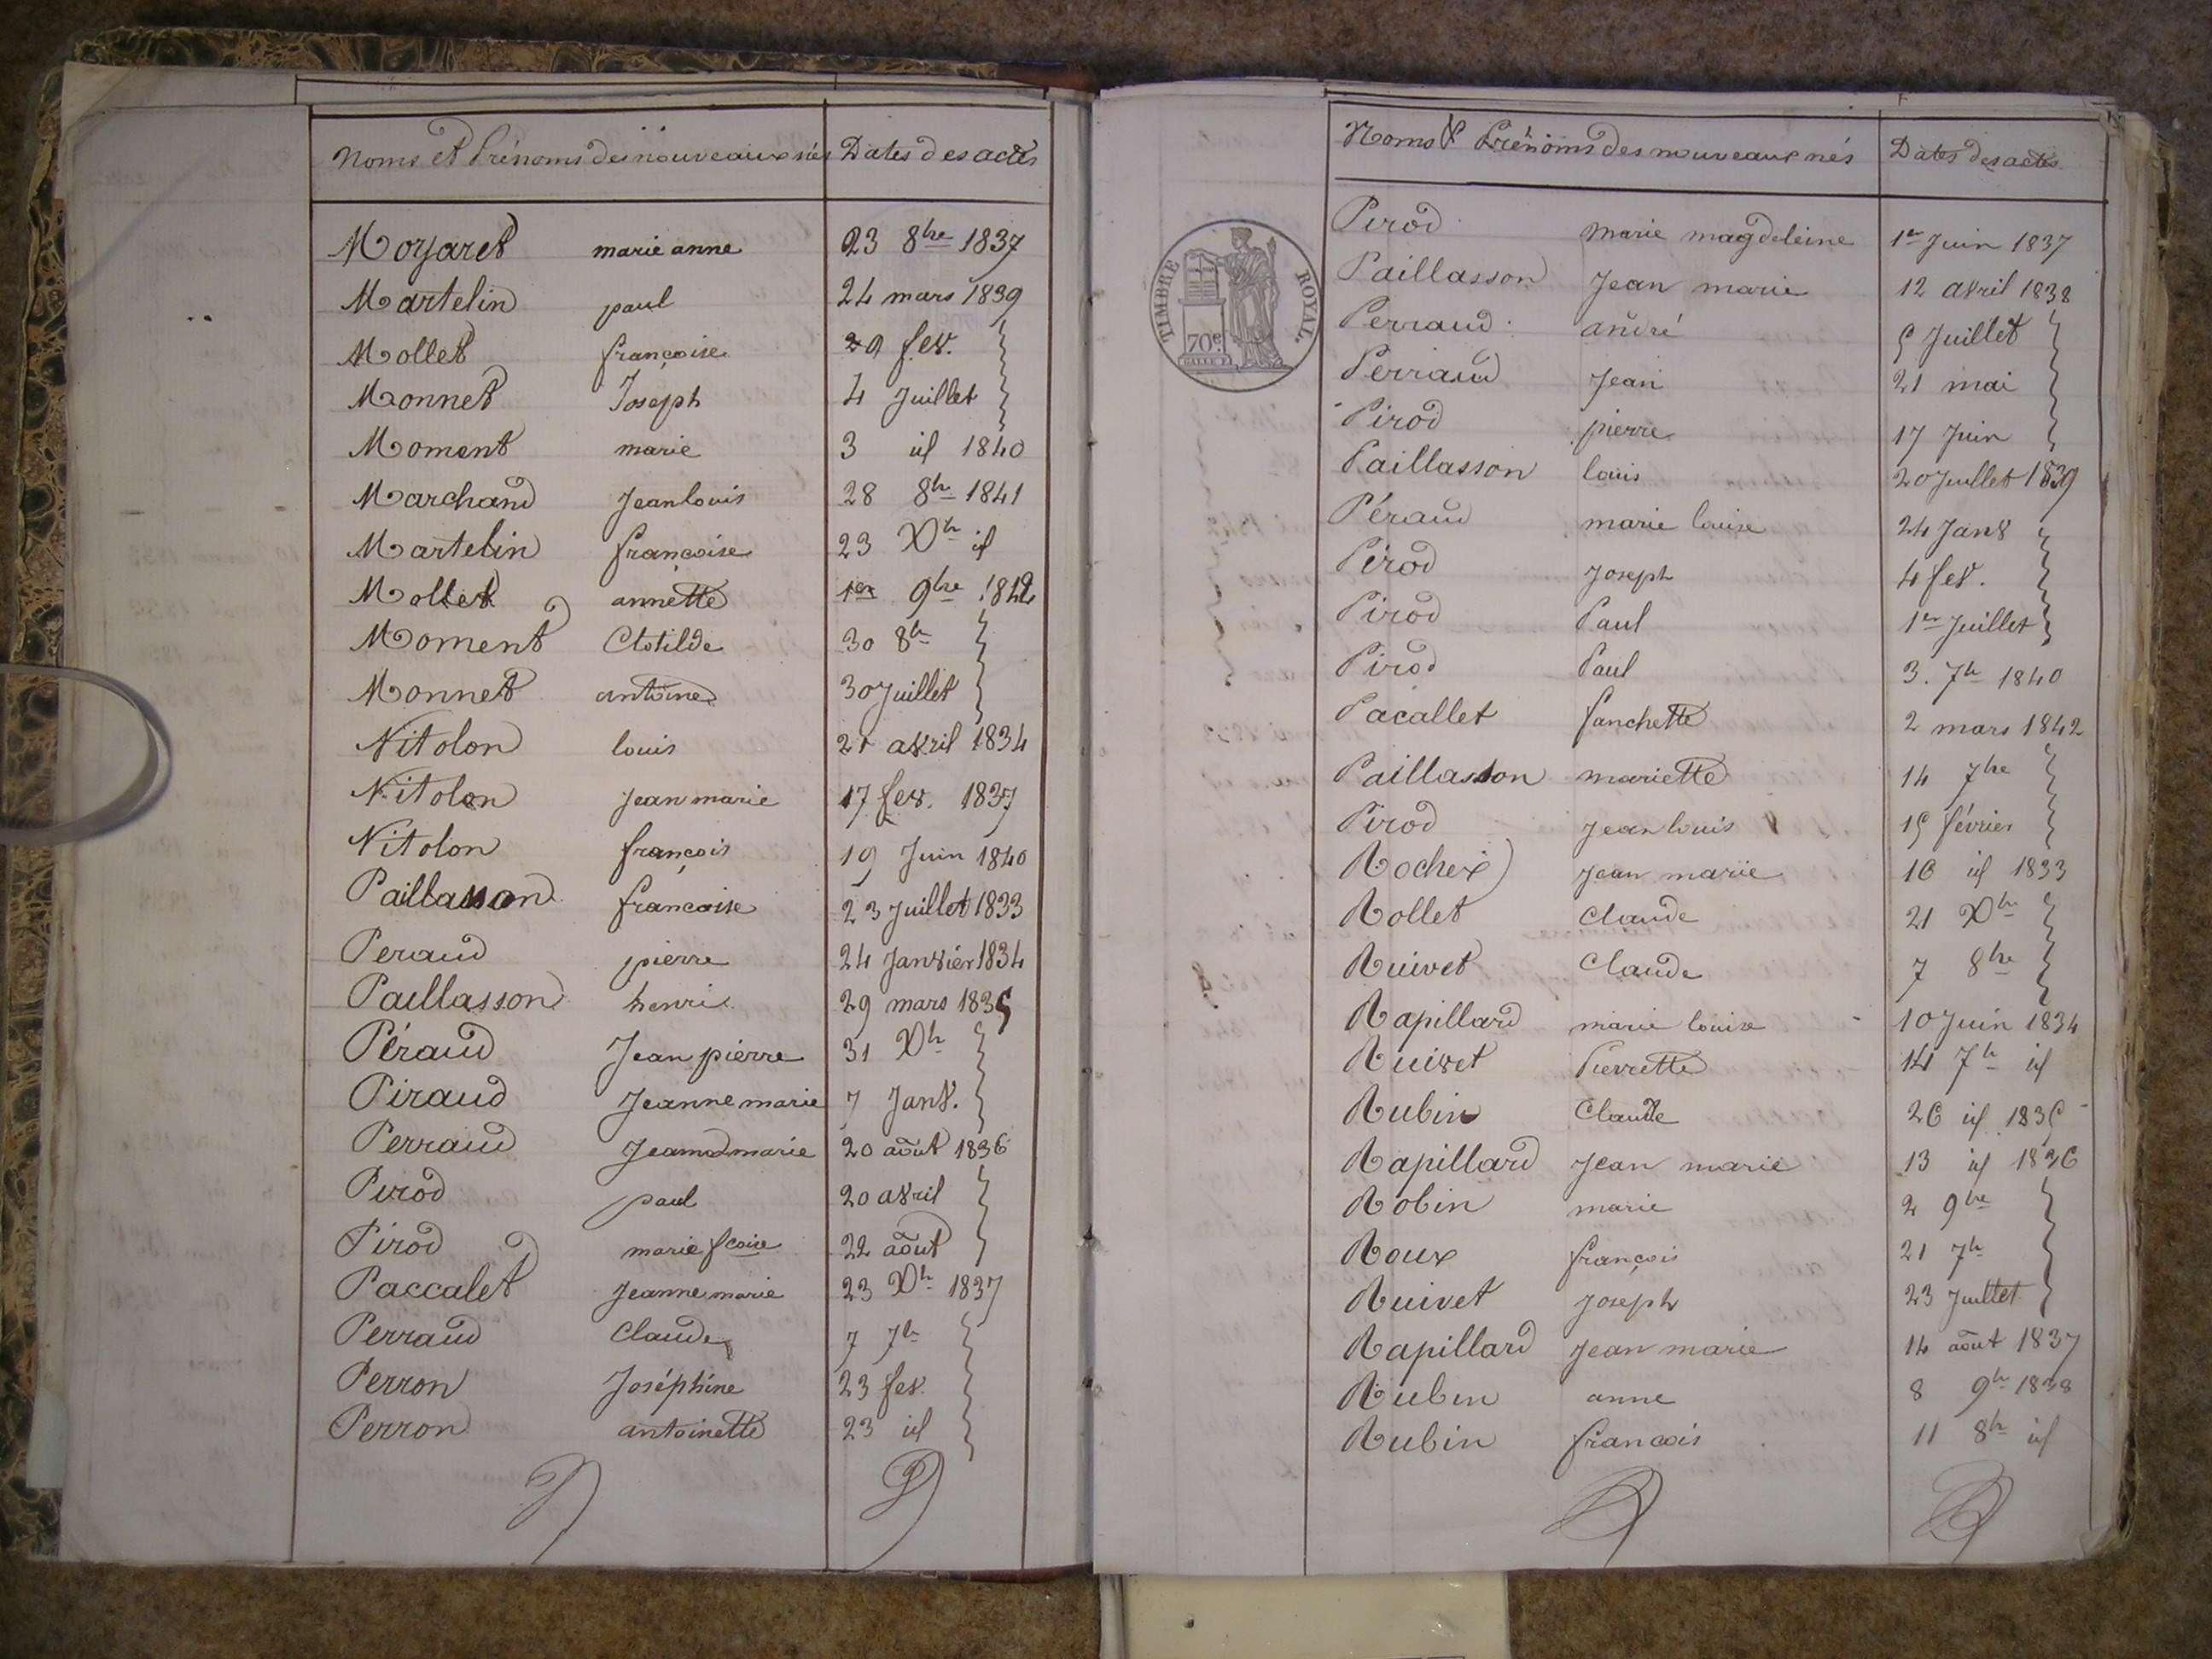 Noms et Prénoms des nouveaux nés Dates des actes
Moyaret marie anne 23 8bre 1837
Martelin paul 24 mars 1839
Mollet françoise 29 fev.
Monnet Joseph 4 Juillet
Moment marie 3 id 1840
Marchand Jean louis 28 8bre 1841
Martelin françoise 23 Xbre id
Mollet annette 1er 9bre 1842
Moment Clotilde 30 8bre
Monnet antoine 30 Juillet
Nitolon louis 21 avril 1834
Nitolon jean marie 17 fev. 1837
Nitolon françois 19 Juin 1840
Paillasson francoise 23 Juillet 1833
Peraud pierre 24 Janvier 1834
Paillasson henri 29 mars 1835
Péraud Jean pierre 31 Xbre
Piraud Jeanne marie 7 Janv.
Perraud marie 20 août 1836
Pirod paul 20 avril
Pirod marie fcoise 22 août
Paccalet Jeanne marie 23 Xbre 1837
Perraud Claude 7 7bre
Perron Joséphine 23 fev.
Perron antoinette 23 id
Noms & Prénoms des nouveaux nés Dates des actes
TIMBRE ROYAL
70c
Pirod marie magdeleine 1er Juin 1837
Paillasson Jean marie 12 avril 1838
Perraud andré 5 Juillet
Perraud Jean 21 mai
Pirod pierre 17 Juin
Paillasson louis 20 Juillet 1839
Péraud marie louise 24 Janv
Pirod Joseph 4 fev.
Pirod Paul 1er Juillet
Pirod Paul 3. 7bre 1840
Pacallet fanchette 2 mars 1842
Paillasson mariette 14 7bre
Pirod jean louis 15 février
Rochex jean marie 16 id 1833
Rollet Claude 21 Xbre
Ruivet Claude 7 8bre
Rapillard marie louise 10 Juin 1834
Ruivet Pierrette 14 7bre id
Rubin Claude 26 id 1835
Rapillard jean marie 13 id 1836
Robin marie 2 9bre
Roux françois 21 7bre
Ruivet Joseph 23 Juillet
Rapillard jean marie 14 août 1837
Rubin anne 8 9bre 1838
Rubin francois 11 8bre id